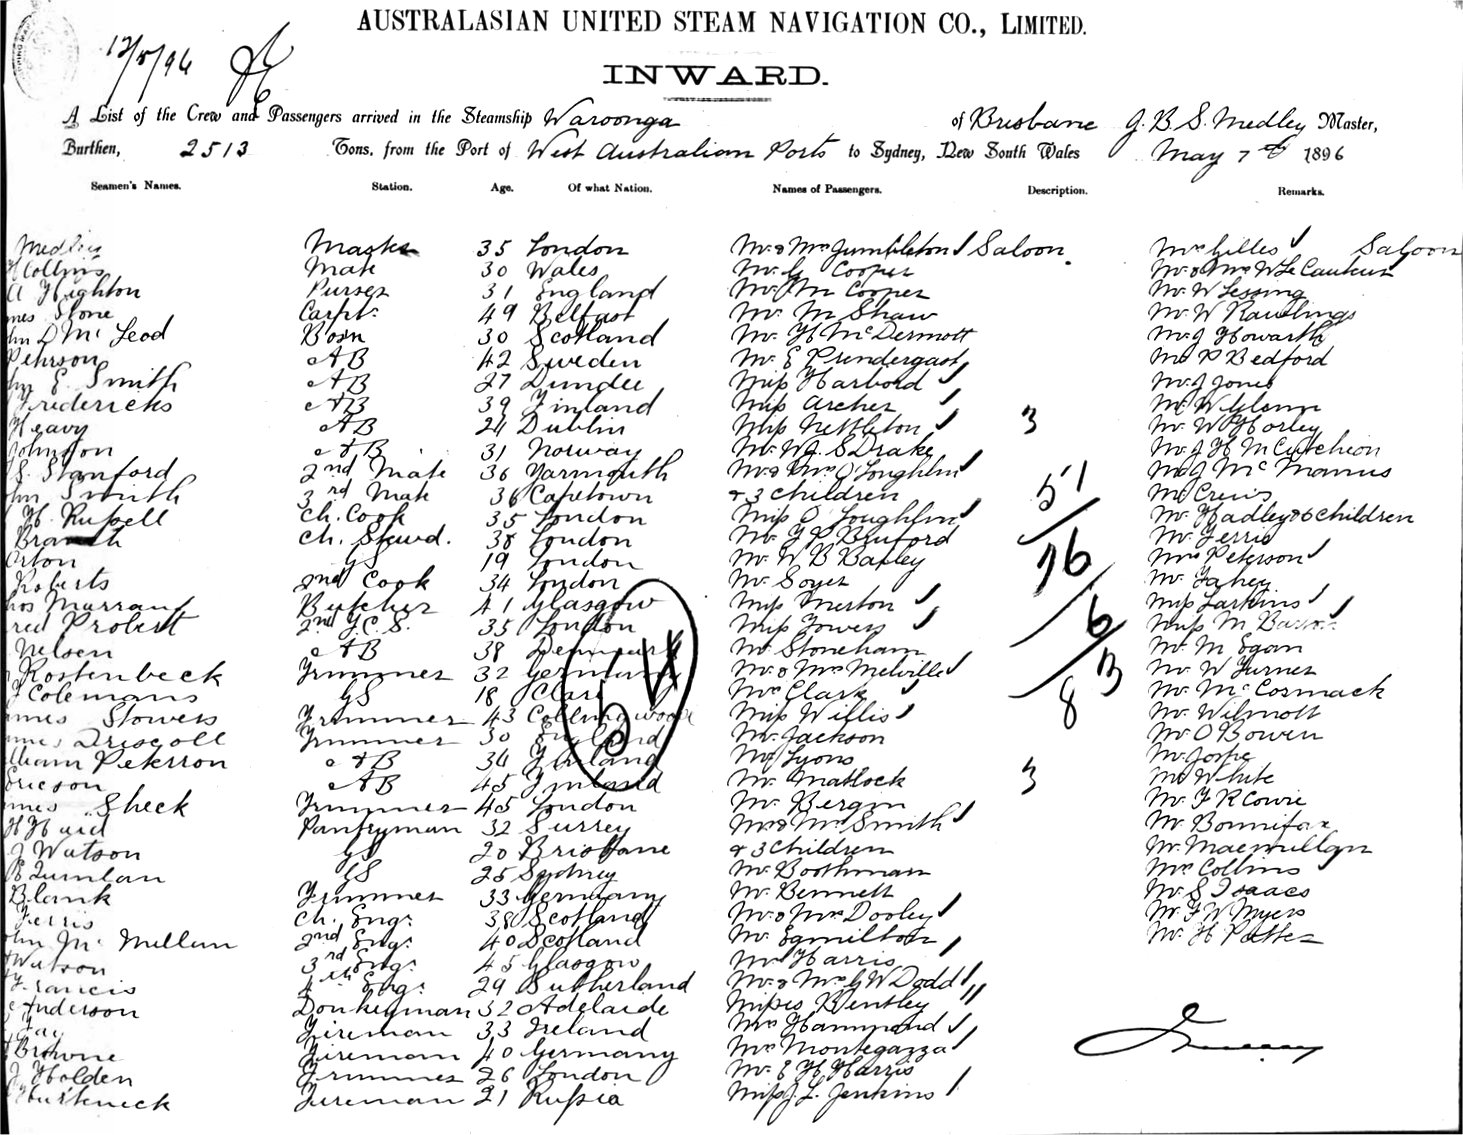 AUSTRALASIAN UNITED STEAM NAVIGATION CO., LIMITED.
12/5/96
INWARD.
A List of the Crew and Passengers arrived in the Steamship Waroonga of Brisbane J.B.S. Medley Master,
Burthen, 2513 Tons, from the Port of West Australian Ports to Sydney, New South Wales May 7th 1896
Seamen's Names. Station. Age. Of what Nation. Names of Passengers. Description. Remarks.
Medley Master 35 London Mr & Mrs Jumbleton Saloon Mrs Lilles Saloon
H Collins Mate 30 Wales Mr G Cooper Mr & Mrs W Le Cauteur
A Highton Purser 31 England Mr M Cooper Mr W Lessing
Stone Carpr 49 Belfast Mr M Shaw Mr W Rawlings
D McLeod Bosn 30 Scotland Mr H McDermott Mr J Howarth
Pehrson AB 42 Sweden Mr E Prendergast Mr P Bedford
E. Smith AB 27 Dundee Miss Harbord Mr J Jones
Fredericks AB 39 Finland Miss Archer Mr W Glenn
Heavy AB 24 Dublin Miss Nettleton 3 Mr W Horley
Johnson AB 31 Norway Mr W.J. S Drake Mr J H McCutcheon
S. Stanford 2nd Mate 36 Yarmouth Mr & Mrs O'Loughlin Mr J McManus
Smith 3rd Mate 36 Capetown & 3 children 51 Mr Crews
H. Russell Ch. Cook 35 London Miss O'Loughlin Mr Hadley & 6 children
Branth Ch. Stewd. 38 London Mr J P Bruford Mr Ferris
Orton GS 19 London Mr W B Barley 76 Mrs Peterson
Roberts 2nd Cook 34 London Mr Soyer Mr Fahey
Murrant Butcher 41 Glasgow Miss Merton Miss Larkins
Probert 2nd J.C.S. 35 London Miss Towers 6 Miss M
Nelsen AB 38 Denmark Mr Stoneham Mr M Egan
Rostenbeck Trimmer 32 Germany Mr & Mrs Melville 13 Mr W Turner
J Colemans GS 18 Clare Mrs Clark 8 Mr McCormack
Stowers Trimmer 43 Collingwood Miss Willis Mr Wilmott
Driscoll Trimmer 30 England Mr Jackson Mr O Bowen
64
William Peterson AB 34 Finland Mr Lyons Mr Jorpe
Ericson AB 45 Finland Mr Matlock 3 Mr White
Sheck Trimmer 45 London Mr Bergin Mr J R Cowie
H Hard Pantryman 32 Surrey Mr & Mrs Smith Mr Bonnifax
J Watson GS 20 Brisbane & 3 children Mr Macmullan
P Quinlan GS 25 Sydney Mr Boothman Mrs Collins
Blank Trimmer 33 Germany Mr Bennett Mr S Isaacs
Ferris Ch. Engr 38 Scotland Mr & Mrs Dooley Mr F W Myers
John McMellan 2nd Engr 40 Scotland Mr Egmilton Mr H Patten
Watson 3rd Engr 45 Glasgow Mrs Harris
Francis 4th Engr 29 Sutherland Mr & Mrs G W Dodd
Anderson Donkeyman 32 Adelaide Misses Bentley
Fay Fireman 33 Ireland Mrs Hammond
Browne Fireman 40 Germany Mrs Montegazza
J Holden Trimmer 26 London Mr E H Harris
Fireman 21 Russia Miss J. L. Jenkins